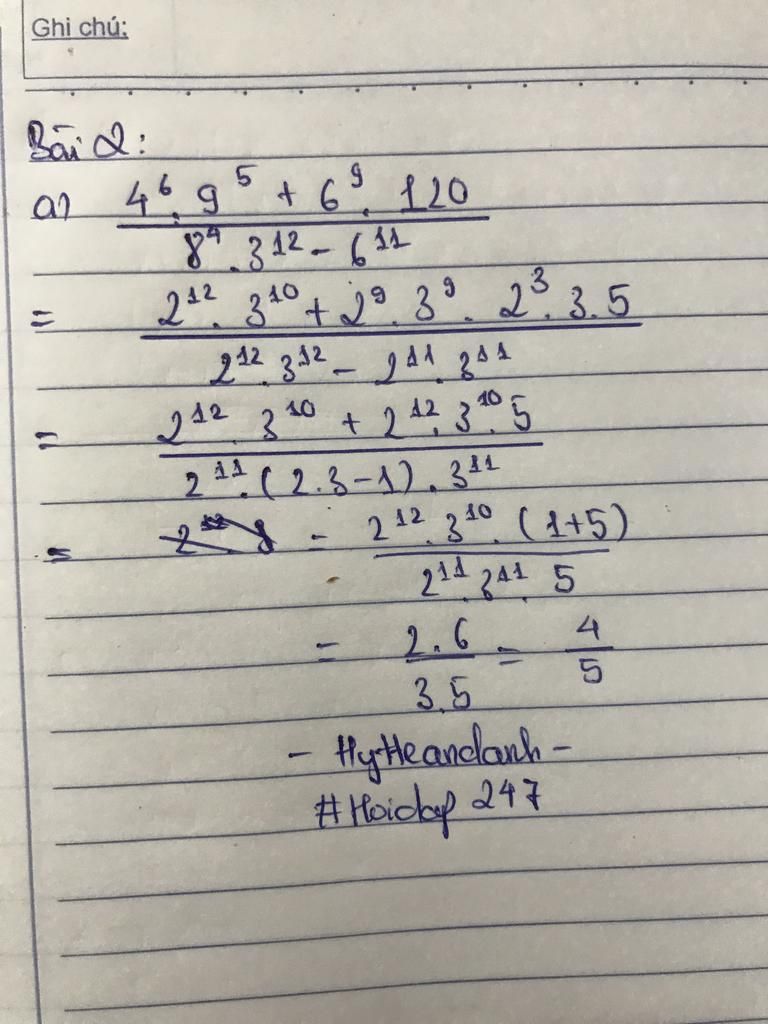 Ghi chú:
Bài 2:
a) \frac{4^6 . 9^5 + 6^9 . 120}{8^4 . 3^{12} - 6^{11}}
= \frac{2^{12} . 3^{10} + 2^9 . 3^9 . 2^3 . 3 . 5}{2^{12} . 3^{12} - 2^{11} . 3^{11}}
= \frac{2^{12} . 3^{10} + 2^{12} . 3^{10} . 5}{2^{11} . (2.3-1) . 3^{11}}
= = \frac{2^{12} . 3^{10} . (1+5)}{2^{11} . 3^{11} . 5}
= \frac{2.6}{3.5} = \frac{4}{5}
- HyHeandanh -
#Hoidap 247